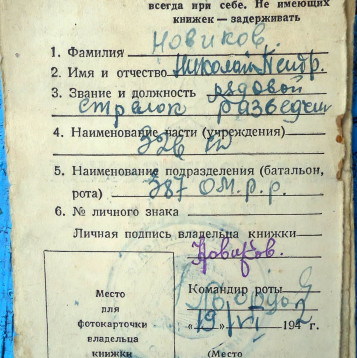 всегда при себе. Не имеющих
книжек — задерживать
1. Фамилия Новиков
2. Имя и отчество Николай Петр.
3. Звание и должность рядовой
стрелок разведчик
4. Наименование части (учреждения)
326 сд
5. Наименование подразделения (батальон,
рота) 387 О.М.Р.Р.
6. № личного знака
Личная подпись владельца книжки
Новиков.
Командир роты
"19" VI 1942 г.
Место
для
фотокарточки
владельца
книжки
(Место